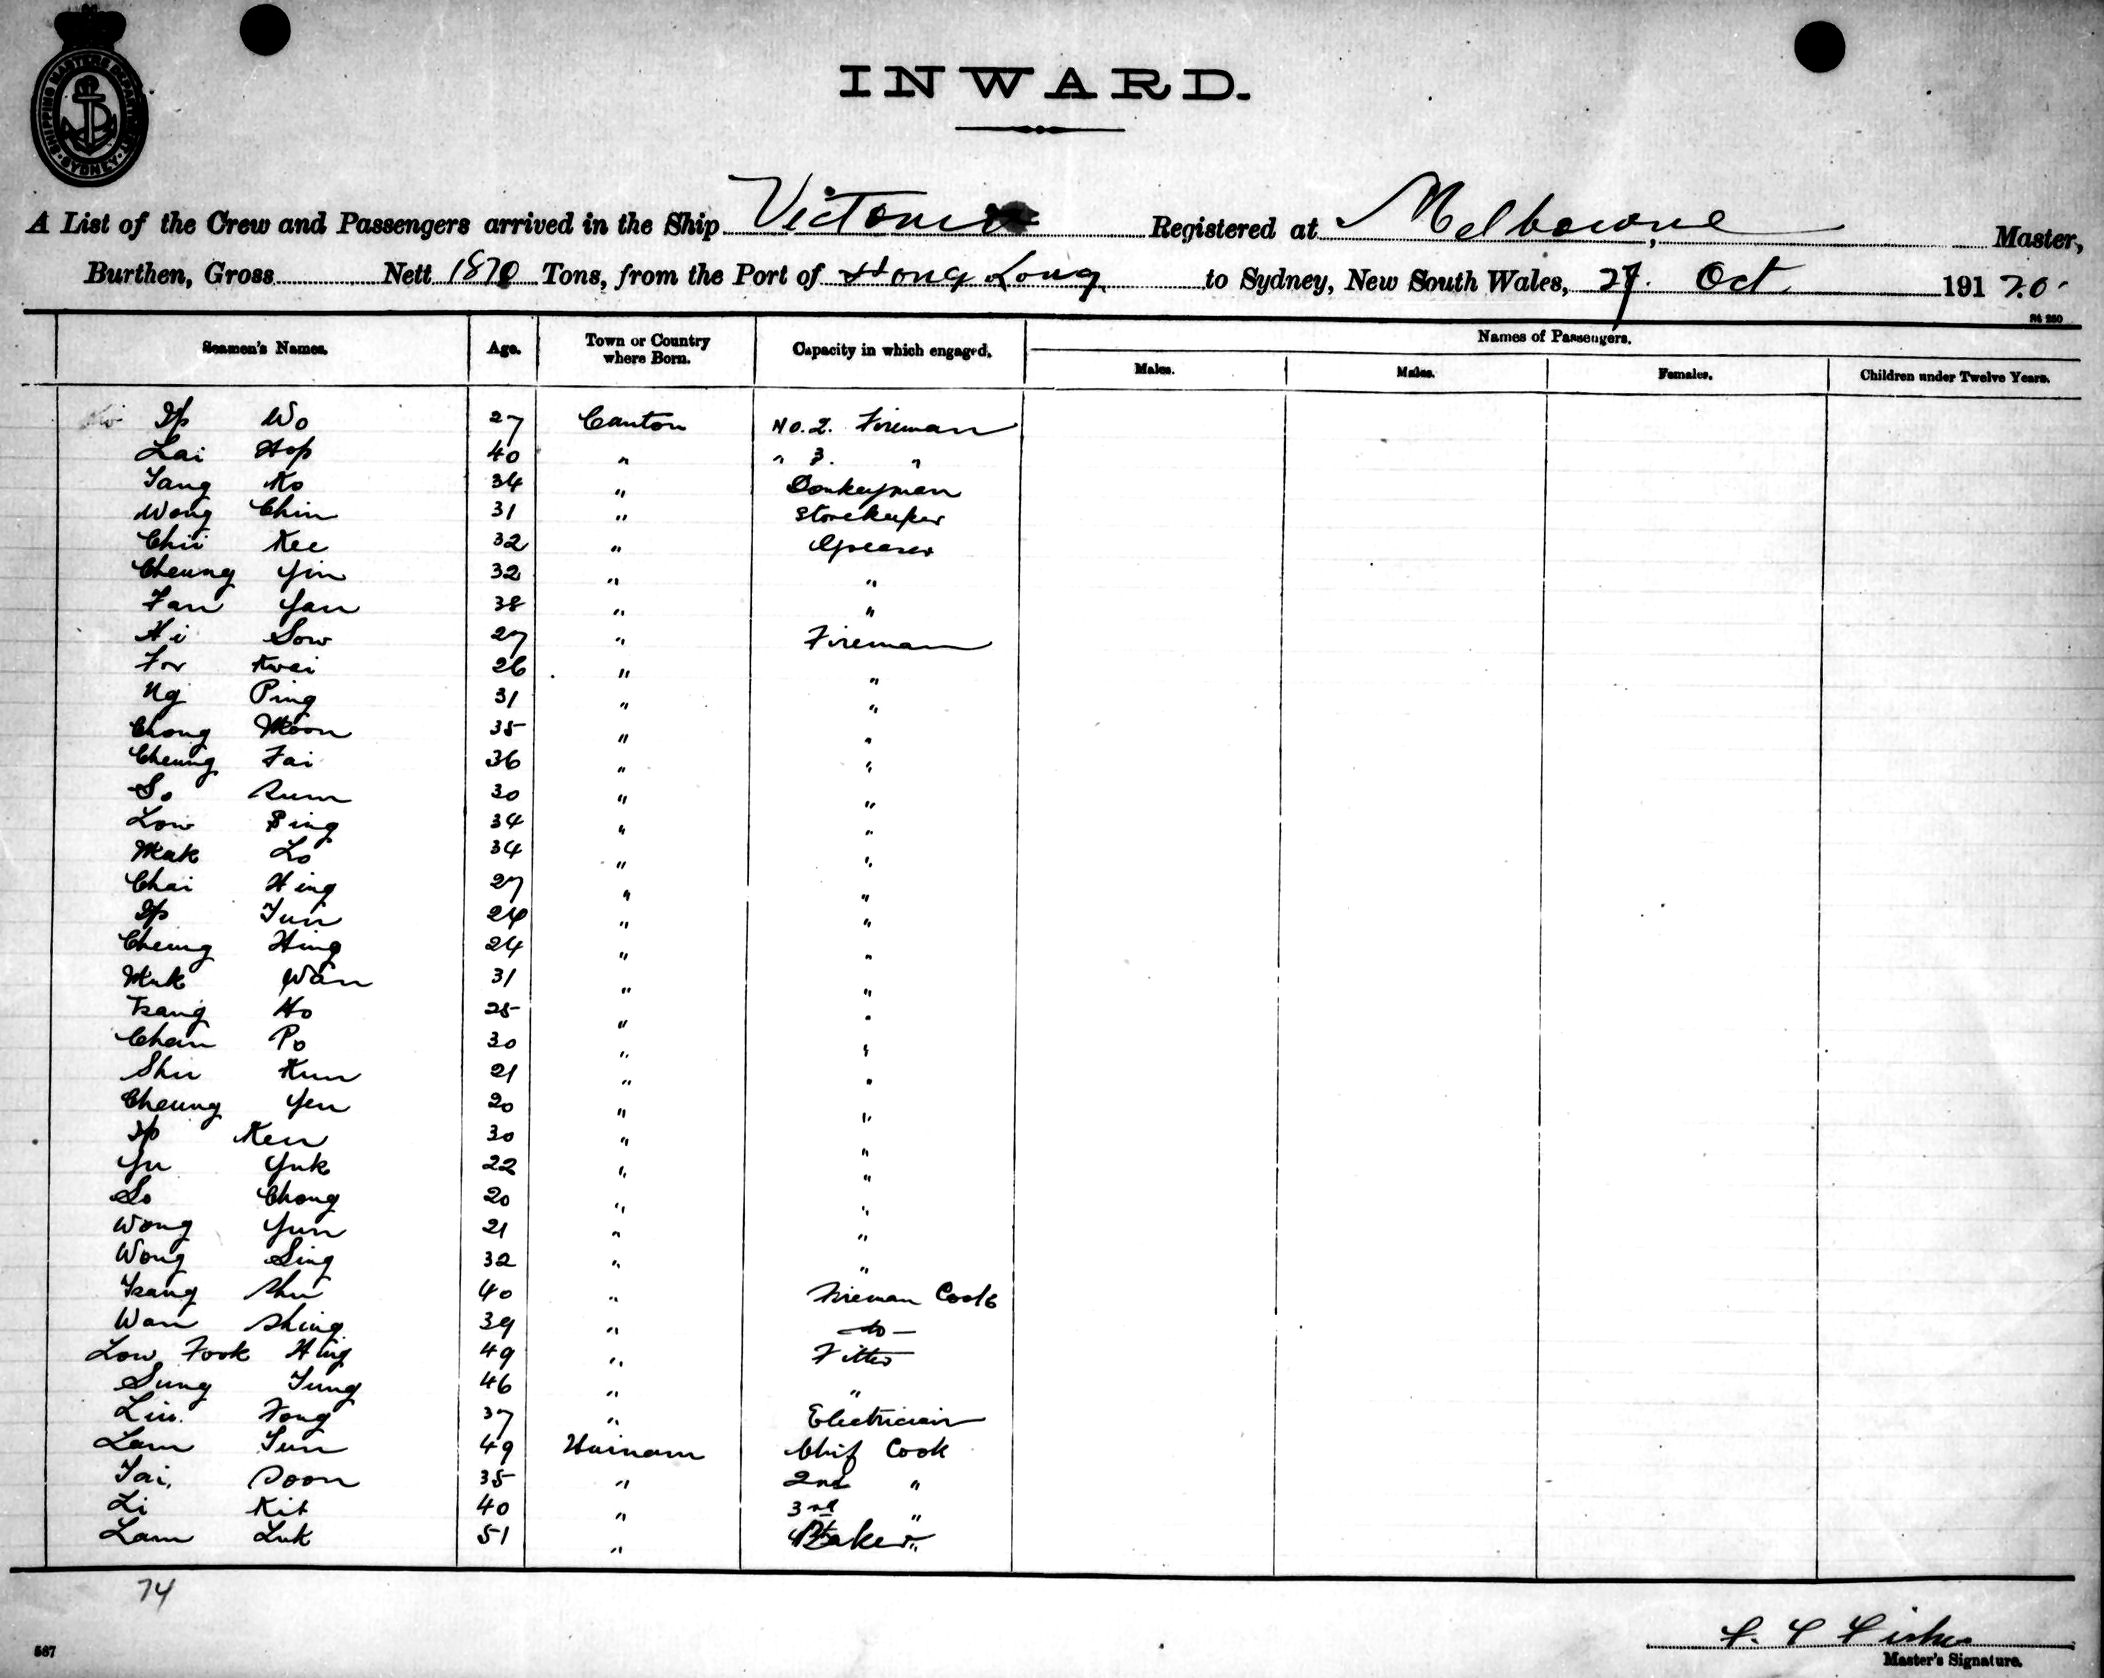 SHIPPING MASTERS DEPARTMENT SYDNEY
INWARD.
A List of the Crew and Passengers arrived in the Ship Victoria Registered at Melbourne, Master,
Burthen, Gross Nett 1870 Tons, from the Port of Hong Kong to Sydney, New South Wales, 27. Oct 191 20.
Seamen's Names. Age. Town or Country where Born. Capacity in which engaged. Names of Passengers.
Males. Males. Females. Children under Twelve Years.
Ip Wo 27 Canton No. 2. Fireman
Lai Hop 40 " " 3. "
Tang Ko 34 " Donkeyman
Wong Chin 31 " Storekeeper
Chii Kee 32 " Greaser
Cheung Yin 32 " "
Fan Yan 38 " "
Hi Sow 27 " Fireman
For Kwai 26 " "
Ng Ping 31 " "
Chong Moon 35 " "
Cheung Fai 36 " "
So Sum 30 " "
Low Bing 34 " "
Mak Lo 34 " "
Chai Hing 27 " "
Ip Tun 24 " "
Cheung Hing 24 " "
Mak Wan 31 " "
Tsang Ho 25 " "
Chan Po 30 " "
Shu Kun 21 " "
Cheung Yen 20 " "
Ip Ken 30 " "
Yu Yuk 22 " "
So Chong 20 " "
Wong Yun 21 " "
Wong Sing 32 " "
Tsang Shu 40 " Fireman Cook
Wan Shing 39 " -do-
Low Fook Hing 49 " Fitter
Sung Tung 46 " "
Liu Fong 37 " Electrician
Lam Sun 49 Hainam Chief Cook
Tai Soon 35 " 2nd "
Li Kit 40 " 3rd "
Lam Luk 51 " Baker
74
567
Master's Signature.